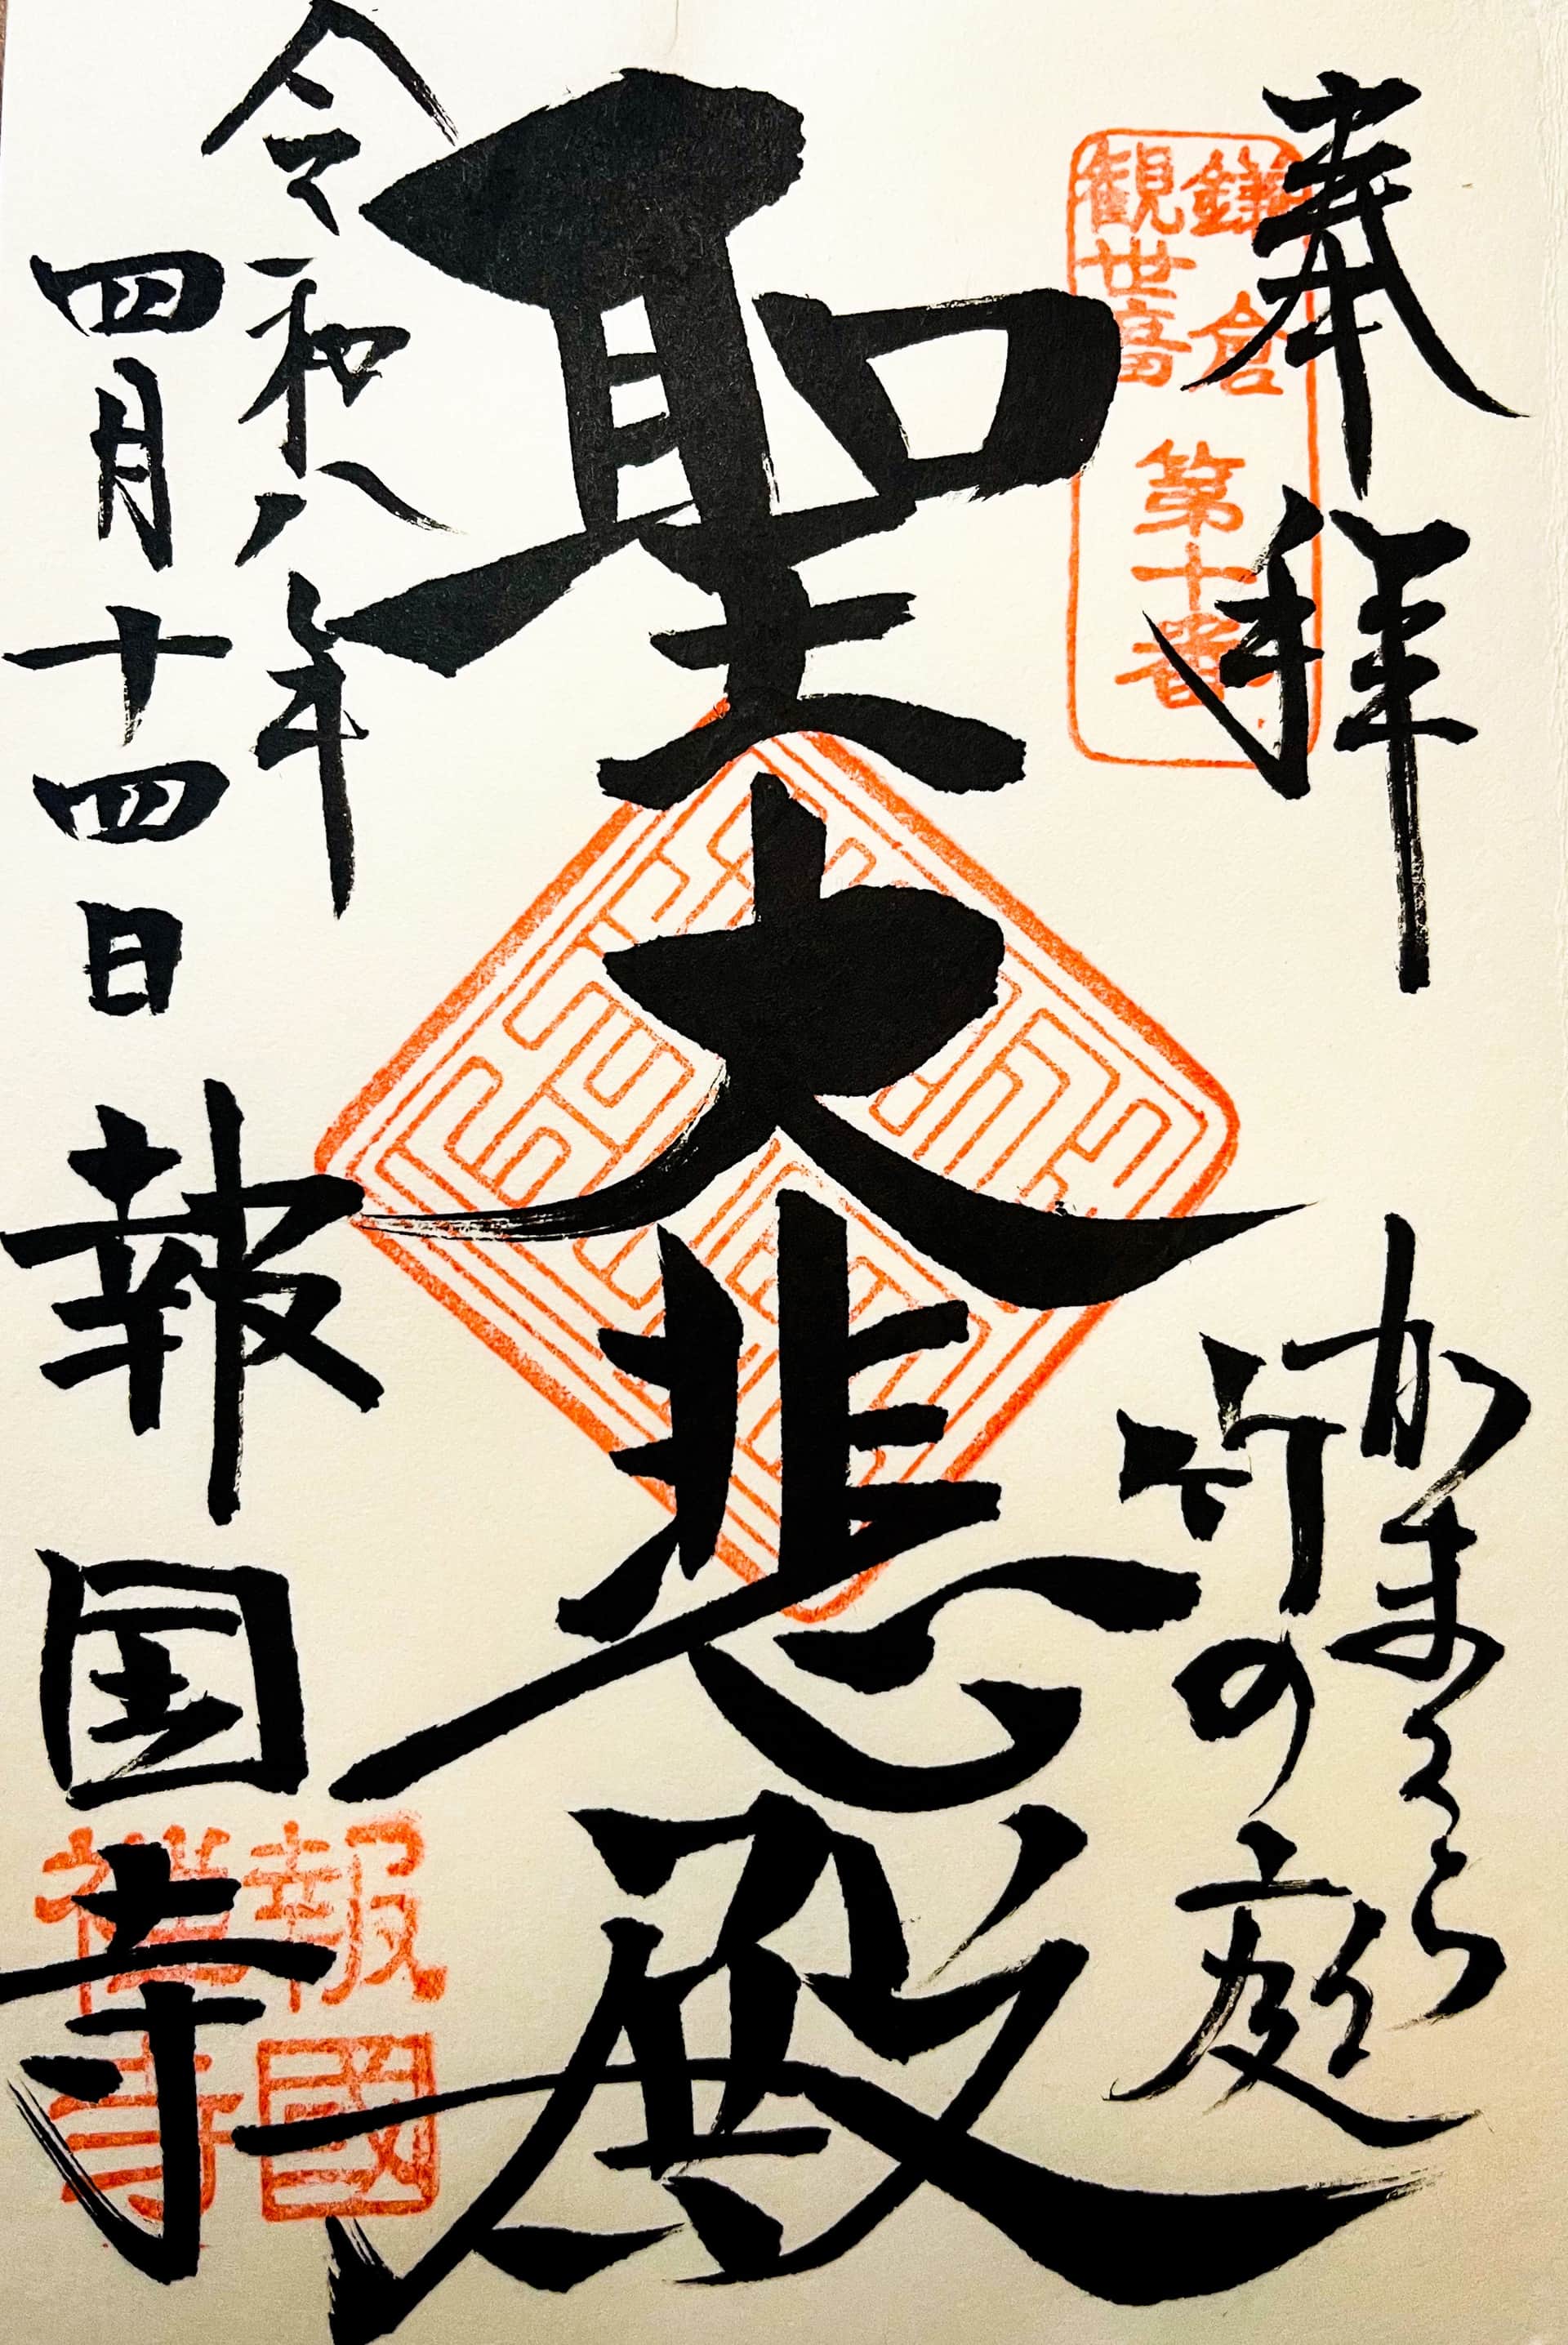 奉拝
かまくら
竹の庭
鎌倉
観世音
第十番
聖大悲殿
令和八年
四月十四日
報国寺
報國
禅寺